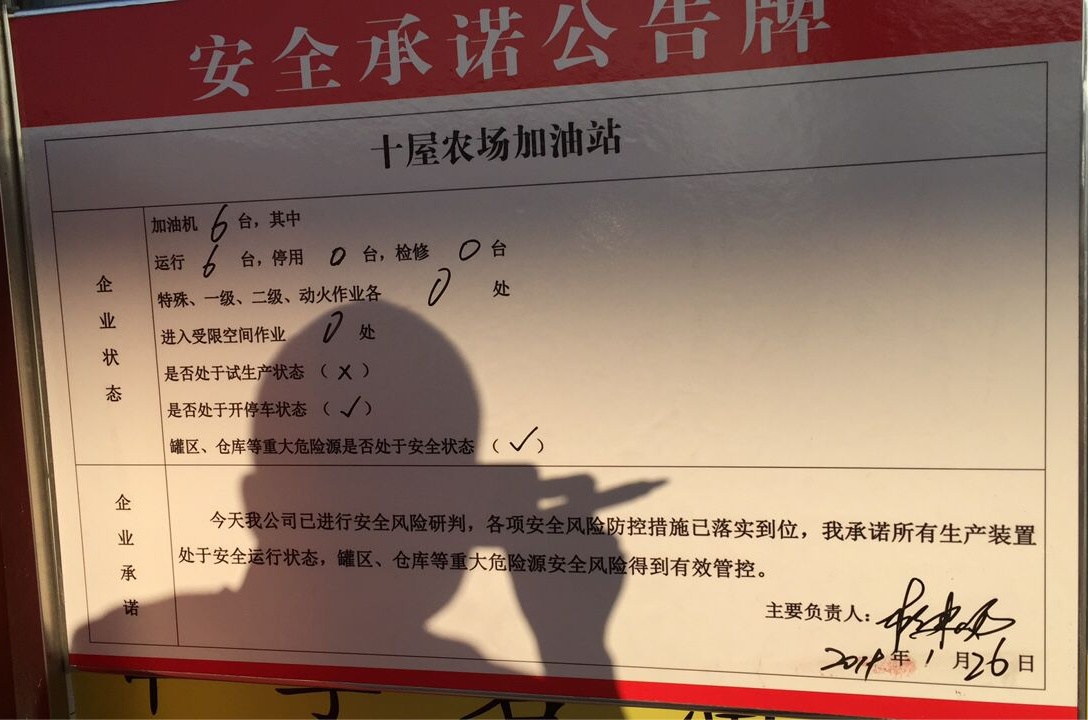 安全承诺公告牌
十屋农场加油站
企业状态
加油机 6 台，其中
运行 6 台，停用 0 台，检修 0 台
特殊、一级、二级、动火作业各 0 处
进入受限空间作业 0 处
是否处于试生产状态（×）
是否处于开停车状态（✓）
罐区、仓库等重大危险源是否处于安全状态（✓）
企业承诺
今天我公司已进行安全风险研判，各项安全风险防控措施已落实到位，我承诺所有生产装置
处于安全运行状态，罐区、仓库等重大危险源安全风险得到有效管控。
主要负责人：
2019 年 1 月 26 日